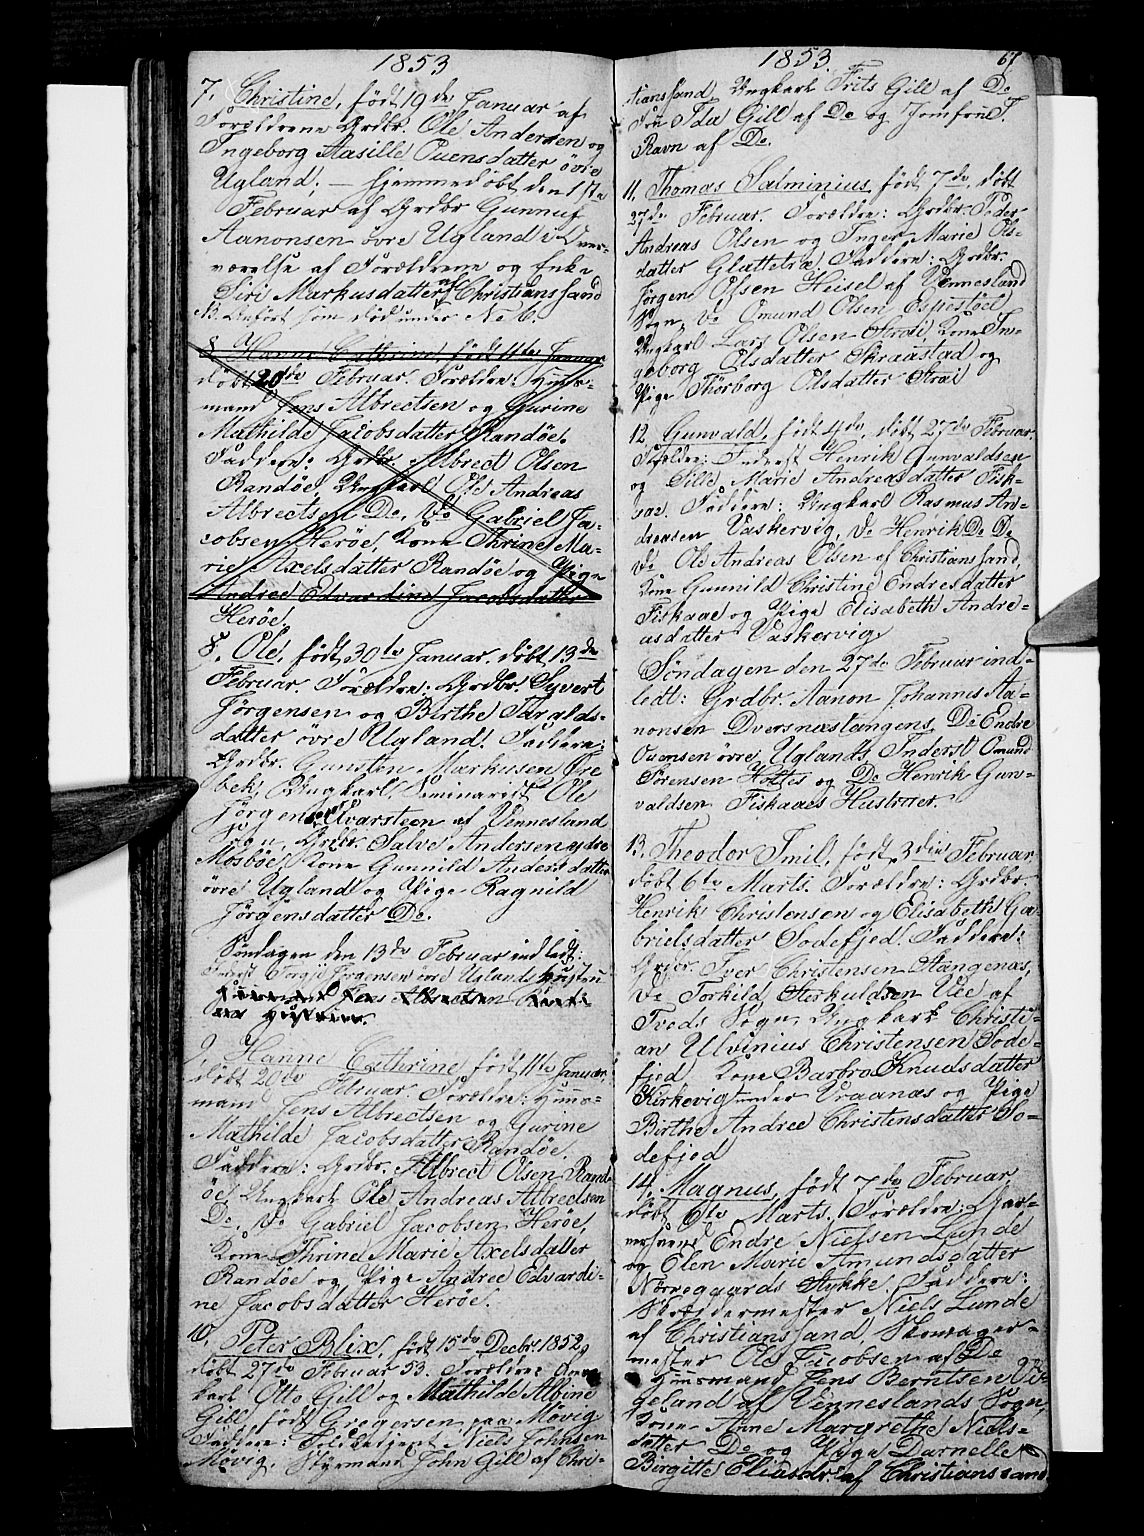 1853
7. Christine, født 19de Januar af
Forældrene Grdbr. Ole Andersen og
Ingeborg Aasille Ouensdatter øvre
Ugland. — hjemmedøbt den 17de
Februar af Grdbr Gunnuf
Aanonsen øvre Ugland i Over-
værelse af Forældrene og Enke
Siri Markusdatter af Christianssand
B. Anført som død under No 6.
8. Hanne Cathrine, født 11te Januar
døbt 20de Februar. Forældre: Huus-
mand Jens Albrectsen og Gurine
Mathilde Jacobsdatter Randøe.
Faddere: Grdbr Albrect Olsen
Randøe, Ungkarl Ole Andreas
Albrectsen De, do Gabriel Ja-
cobsen Herøe, Kone Thrine Ma-
rie Axelsdatter Randøe og Pige
Andree Edvardine Jacobsdatter
Herøe.
8. Ole, født 30te Januar, døbt 13de
Februar. Forældre: Grdbr. Syvert
Jørgensen og Birthe Targlds-
datter øvre Ugland. Faddere:
Grdbr. Gunsten Markusen Øre
bek, Ungkarl, Seminarist Ole
Jørgensen Kvarsteen af Vennesland
Sogn, Grdbr. Salve Andersen ydre
Mosbøe, Kone Gunnild Andersdatter
øvre Ugland og Pige Ragnild
Jørgensdatter De.
Søndagen den 13de Februar indledt:
Inderst Terje Jørgensen øvre Uglands Hustru
Jens Albrectsen
9. Hanne Cathrine, født 11te Januar,
døbt 20de Februar. Forældre: Huus-
mand Jens Albrectsen og Gurine
Mathilde Jacobsdatter Randøe.
Faddere: Grdbr. Albrect Olsen Rand
øe, Ungkarl Ole Andreas Albrectsen
De, do Gabriel Jacobsen Herøe,
Kone Thrine Marie Axelsdatter
Randøe og Pige Andree Edvardi-
ne Jacobsdatter Herøe.
10. Peter Blix, født 15de Decbr 1852,
døbt 27de Februar 53. Forældre: Ung-
karl Otto Gill og Mathilde Albine
Gill, født Gregersen paa Møvig
Faddere: Toldbetjent Niels Johnsen
Møvig, Styrmand John Gill af Chri-
1853
67
stianssand, Ungkarl Frits Gill af De
Fru Ida Gill af De og Jomfru T.
Ravn af De.
11. Thomas Salminius, født 7de, døbt
27de Februar. Forældre: Grdbr. Peder
Andreas Olsen og Inger Marie Ols-
datter Glattetræ Faddere: Grdbr.
Jørgen Olsen Heisel af Vennesland
Sogn, do Omund Olsen Espestøel
Ungkarl Lars Olsen Strai, Kone In-
geborg Olsdatter Skraastad og
Pige Thorborg Olsdatter Strai
12. Gunvald, født 4de, døbt 27de Februar.
Forældre: Inderst Henrik Gunvaldsen
og Sille Marie Andreasdatter Fisk-
aae. Faddere: Ungkarl Rasmus An-
dreasen Vaskervig, do Henrik De De
do Ole Andreas Olsen af Christianssand,
Kone Gunnild Christine Endresdatter
Fiskaae og Pige Elisabeth Andre-
asdatter Vaskervig.
Søndagen den 27de Februar ind-
ledt: Grdbr. Aanon Johannes Aa-
nonsen Dversnæstangens, De Endre
Ouensen øvre Uglands, Inderst Omund
Sørensen Holtes og De Henrik Gun-
valdsen Fiskaaes Hustruer.
13. Theodor Emil, født 3die Februar
døbt 6te Marts. Forældre: Grdbr.
Henrik Christensen og Elisabeth Ga-
brielsdatter Sodefjed. Faddere:
Grdbr. Iver Christensen Stangenæs,
do Torkild Terkuldsen Vee af
Tveds Sogn, Ungkarl Christi-
an Ulvinius Christensen Sode-
fjed, Kone Barbro Knudsdatter
Kirkevig under Vraanæs og Pige
Birthe Andree Christensdatter So-
defjed
14. Magnus, født 7de Februar,
døbt 6te Marts. Forældre: Gar-
versvend Endre Nielsen Lunde
og Elen Marie Amundsdatter
Norregaards Stykke. Faddere:
Skrædermester Niels Lunde
af Christianssand, Skomager-
mester Ole Jacobsen af De
Huusmand Jens Berntsen Vi-
geland af Venneslands Sogn,
Kone Anne Margrethe Niels-
datter De og Pige Darnelle
Birgitte Eliasdr. af Christianssand